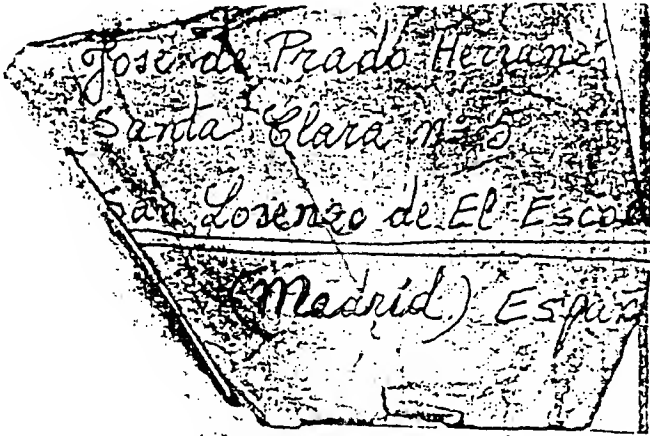 Jose de Prado Herranz
Santa Clara nº 5
San Lorenzo de El Esco
(Madrid) Españ